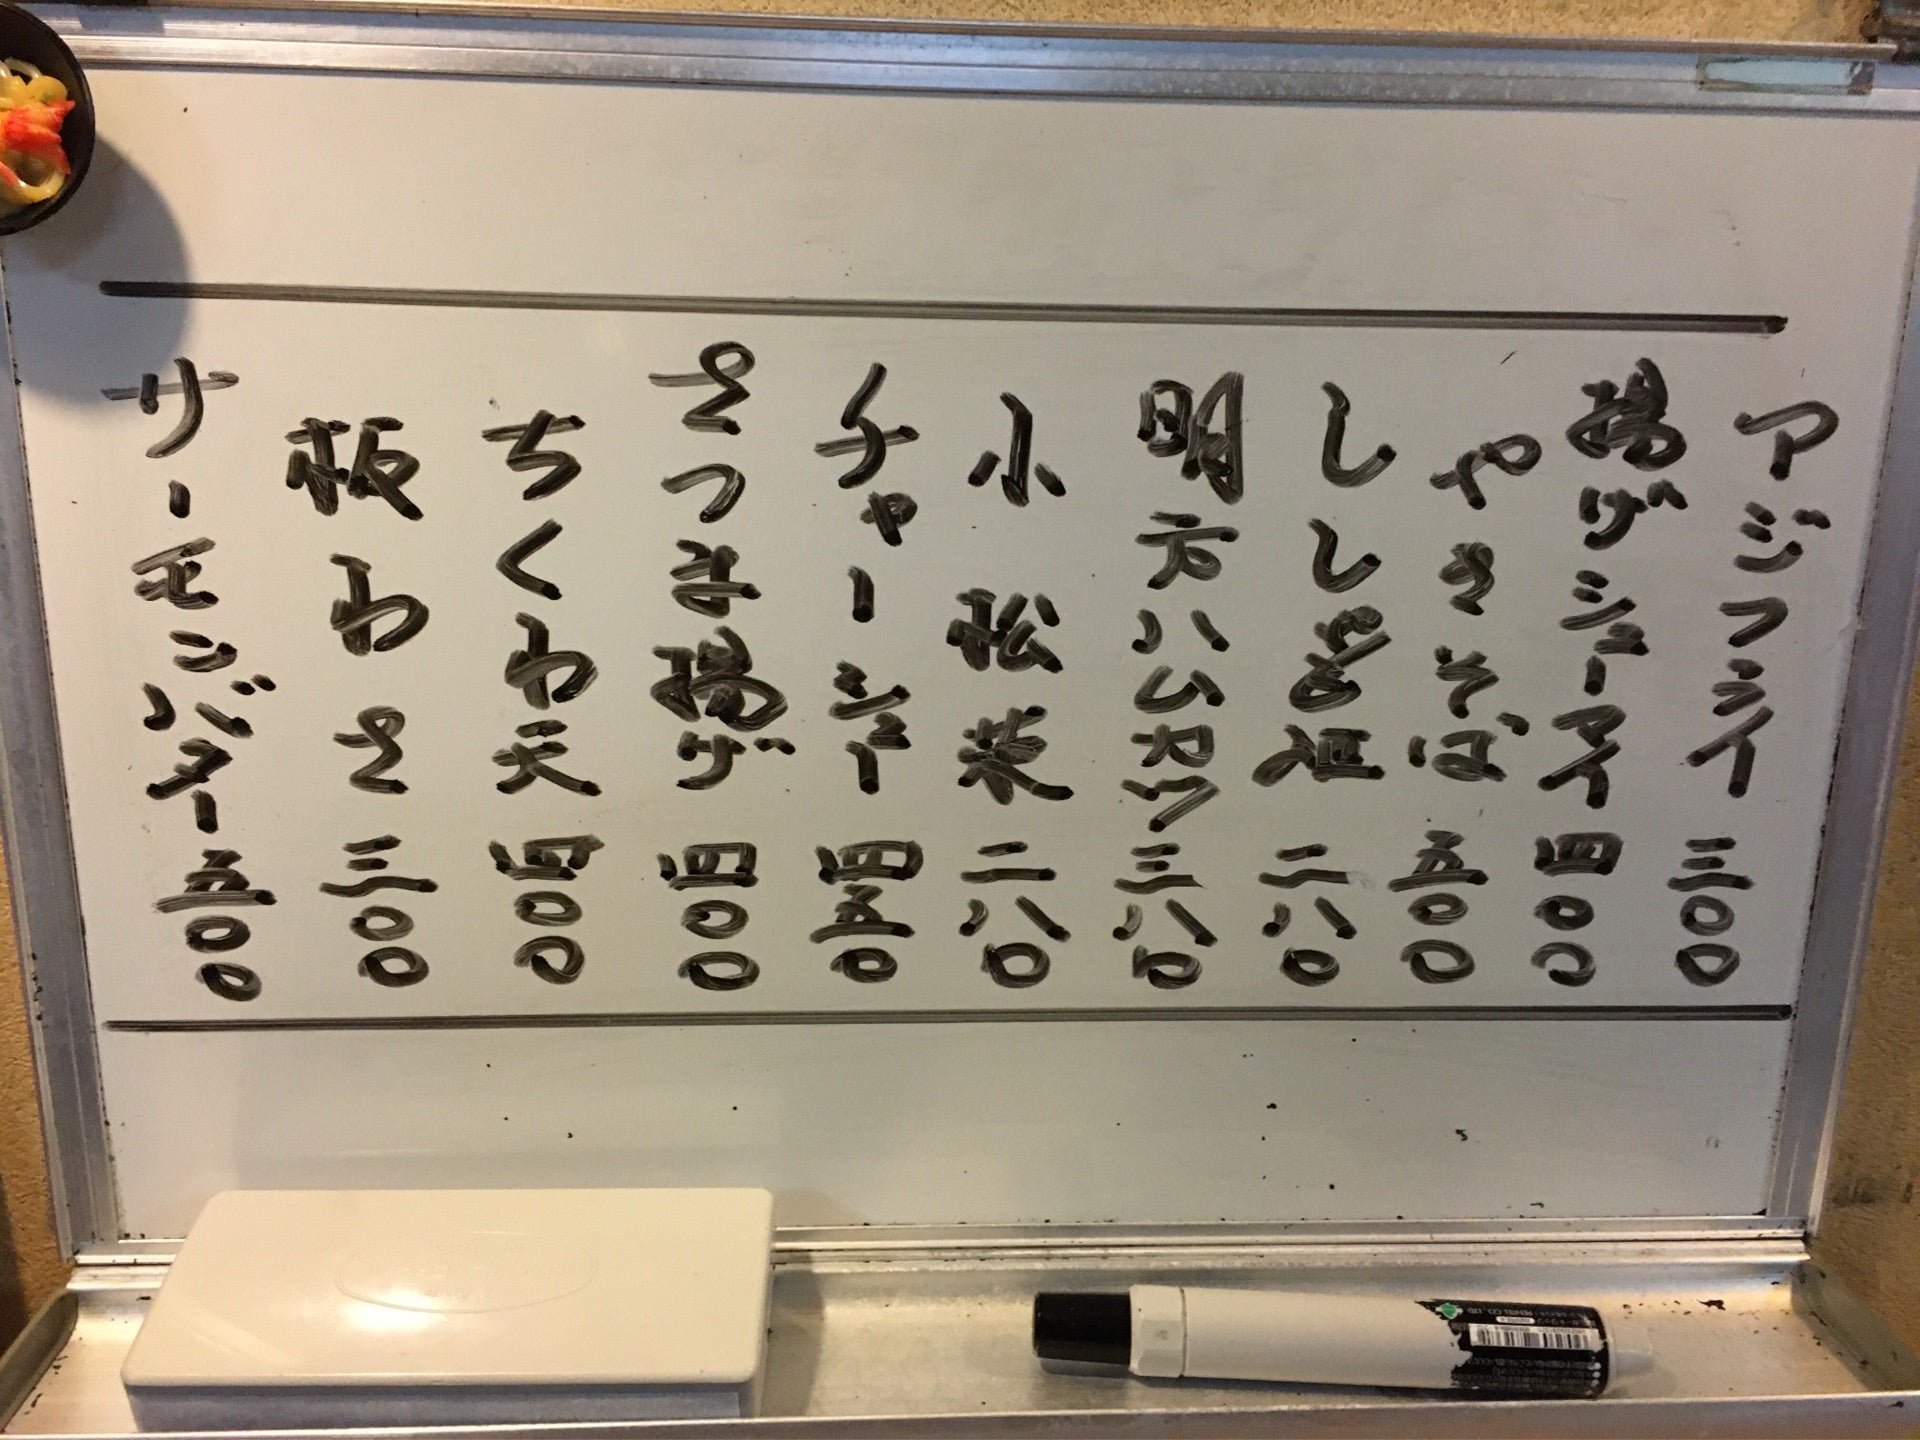 アジフライ 三〇〇
揚ゲシューマイ 四〇〇
やきそば 五〇〇
しし唐 二八〇
明方ハムカツ 三八〇
小松菜 二八〇
チャーシュー 四五〇
さつま揚ゲ 四〇〇
ちくわ天 四〇〇
板わさ 三〇〇
サーモンバター 五〇〇
PENTEL CO., LTD.